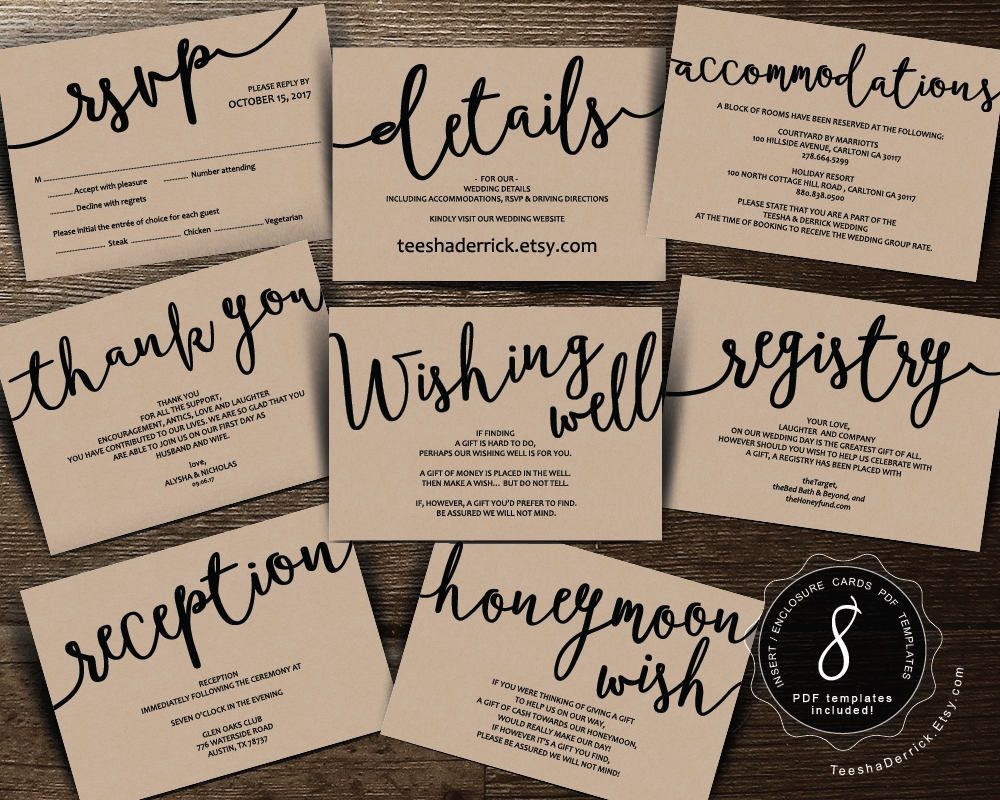 rsvp
PLEASE REPLY BY
OCTOBER 15, 2017
M
Accept with pleasure Number attending
Decline with regrets
Please initial the entrée of choice for each guest
Steak Chicken Vegetarian
details
- FOR OUR -
WEDDING DETAILS
INCLUDING ACCOMMODATIONS, RSVP & DRIVING DIRECTIONS
KINDLY VISIT OUR WEDDING WEBSITE
teeshaderrick.etsy.com
accommodations
A BLOCK OF ROOMS HAVE BEEN RESERVED AT THE FOLLOWING:
COURTYARD BY MARRIOTTS
100 HILLSIDE AVENUE, CARLTONI GA 30117
278.664.5299
HOLIDAY RESORT
100 NORTH COTTAGE HILL ROAD , CARLTONI GA 30117
880.838.0500
PLEASE STATE THAT YOU ARE A PART OF THE
TEESHA & DERRICK WEDDING
AT THE TIME OF BOOKING TO RECEIVE THE WEDDING GROUP RATE.
thank you
THANK YOU
FOR ALL THE SUPPORT,
ENCOURAGEMENT, ANTICS, LOVE AND LAUGHTER
YOU HAVE CONTRIBUTED TO OUR LIVES. WE ARE SO GLAD THAT YOU
ARE ABLE TO JOIN US ON OUR FIRST DAY AS
HUSBAND AND WIFE.
love,
ALYSHA & NICHOLAS
09.06.17
Wishing
well
IF FINDING
A GIFT IS HARD TO DO,
PERHAPS OUR WISHING WELL IS FOR YOU.
A GIFT OF MONEY IS PLACED IN THE WELL.
THEN MAKE A WISH... BUT DO NOT TELL.
IF, HOWEVER, A GIFT YOU'D PREFER TO FIND.
BE ASSURED WE WILL NOT MIND.
registry
YOUR LOVE,
LAUGHTER AND COMPANY
ON OUR WEDDING DAY IS THE GREATEST GIFT OF ALL.
HOWEVER SHOULD YOU WISH TO HELP US CELEBRATE WITH
A GIFT, A REGISTRY HAS BEEN PLACED WITH
theTarget,
theBed Bath & Beyond, and
theHoneyfund.com
reception
RECEPTION
IMMEDIATELY FOLLOWING THE CEREMONY AT
SEVEN O'CLOCK IN THE EVENING
GLEN OAKS CLUB
776 WATERSIDE ROAD
AUSTIN, TX 78737
honeymoon
wish
IF YOU WERE THINKING OF GIVING A GIFT
TO HELP US ON OUR WAY,
A GIFT OF CASH TOWARDS OUR HONEYMOON,
WOULD REALLY MAKE OUR DAY!
IF HOWEVER IT'S A GIFT YOU FIND,
PLEASE BE ASSURED WE WILL NOT MIND!
INSERT / ENCLOSURE CARDS PDF TEMPLATES
8
PDF templates
included!
TeeshaDerrick.Etsy.com